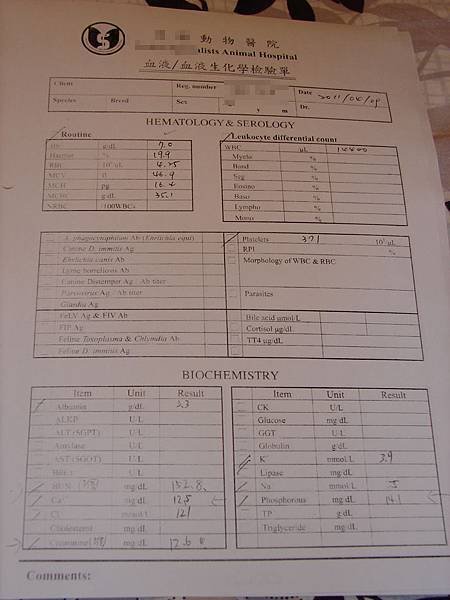 動物醫院
alists Animal Hospital
血液/血液生化學檢驗單
Client
Reg. number
Date 2011/04/09
Species Breed Sex y m Dr.
HEMATOLOGY & SEROLOGY
Routine
Leukocyte differential count
Hb g/dL 7.0
WBC μL
% 19.9
Myelo %
RBC 10⁶/μL 4.25
Band %
MCV fl 46.9
Seg %
MCH pg 16.4
Eosino %
MCHC g/dL 35.1
Baso %
NRBC /100WBCs
Lympho %
Mono %
A. phagocytophilum Ab (Ehrlichia equi)
Platelets 371 10³/μL
Canine D. immitis Ag
RPI %
Ehrlichia canis Ab
Morphology of WBC & RBC
Lyme borreliosis Ab
Canine Distemper Ag / Ab titer
Parvovirus Ag / Ab titer
Parasites
Giardia Ag
FeLV Ag & FIV Ab
Bile acid μmol/L
FIP Ag
Cortisol μg/dL
Feline Toxoplasma & Chlymdia Ab
TT4 μg/dL
Feline D. immitis Ag
BIOCHEMISTRY
Item Unit Result
Item Unit Result
Albumin g/dL
CK U/L
ALKP U/L
Glucose mg/dL
ALT (SGPT) U/L
GGT U/L
Amylase U/L
Globulin g/dL
AST (SGOT) U/L
K⁺ mmol/L 3.9
U/L
Lipase mg/dL
BUN mg/dL 152.8
Na mmol/L
Ca mg/dL 12.5
Phosphorous mg/dL 14.1
Cl mmol/L 121
TP g/dL
Cholesterol mg/dL
Triglyceride mg/dL
Creatinine mg/dL 12.6
Comments: